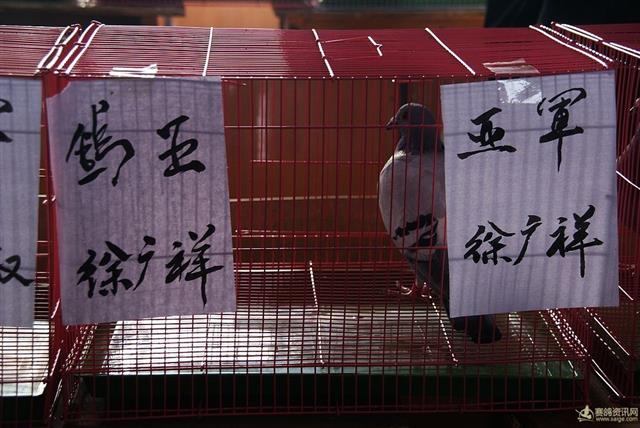 鸽王
徐广祥
亚军
徐广祥
赛鸽资讯网
www.saige.com